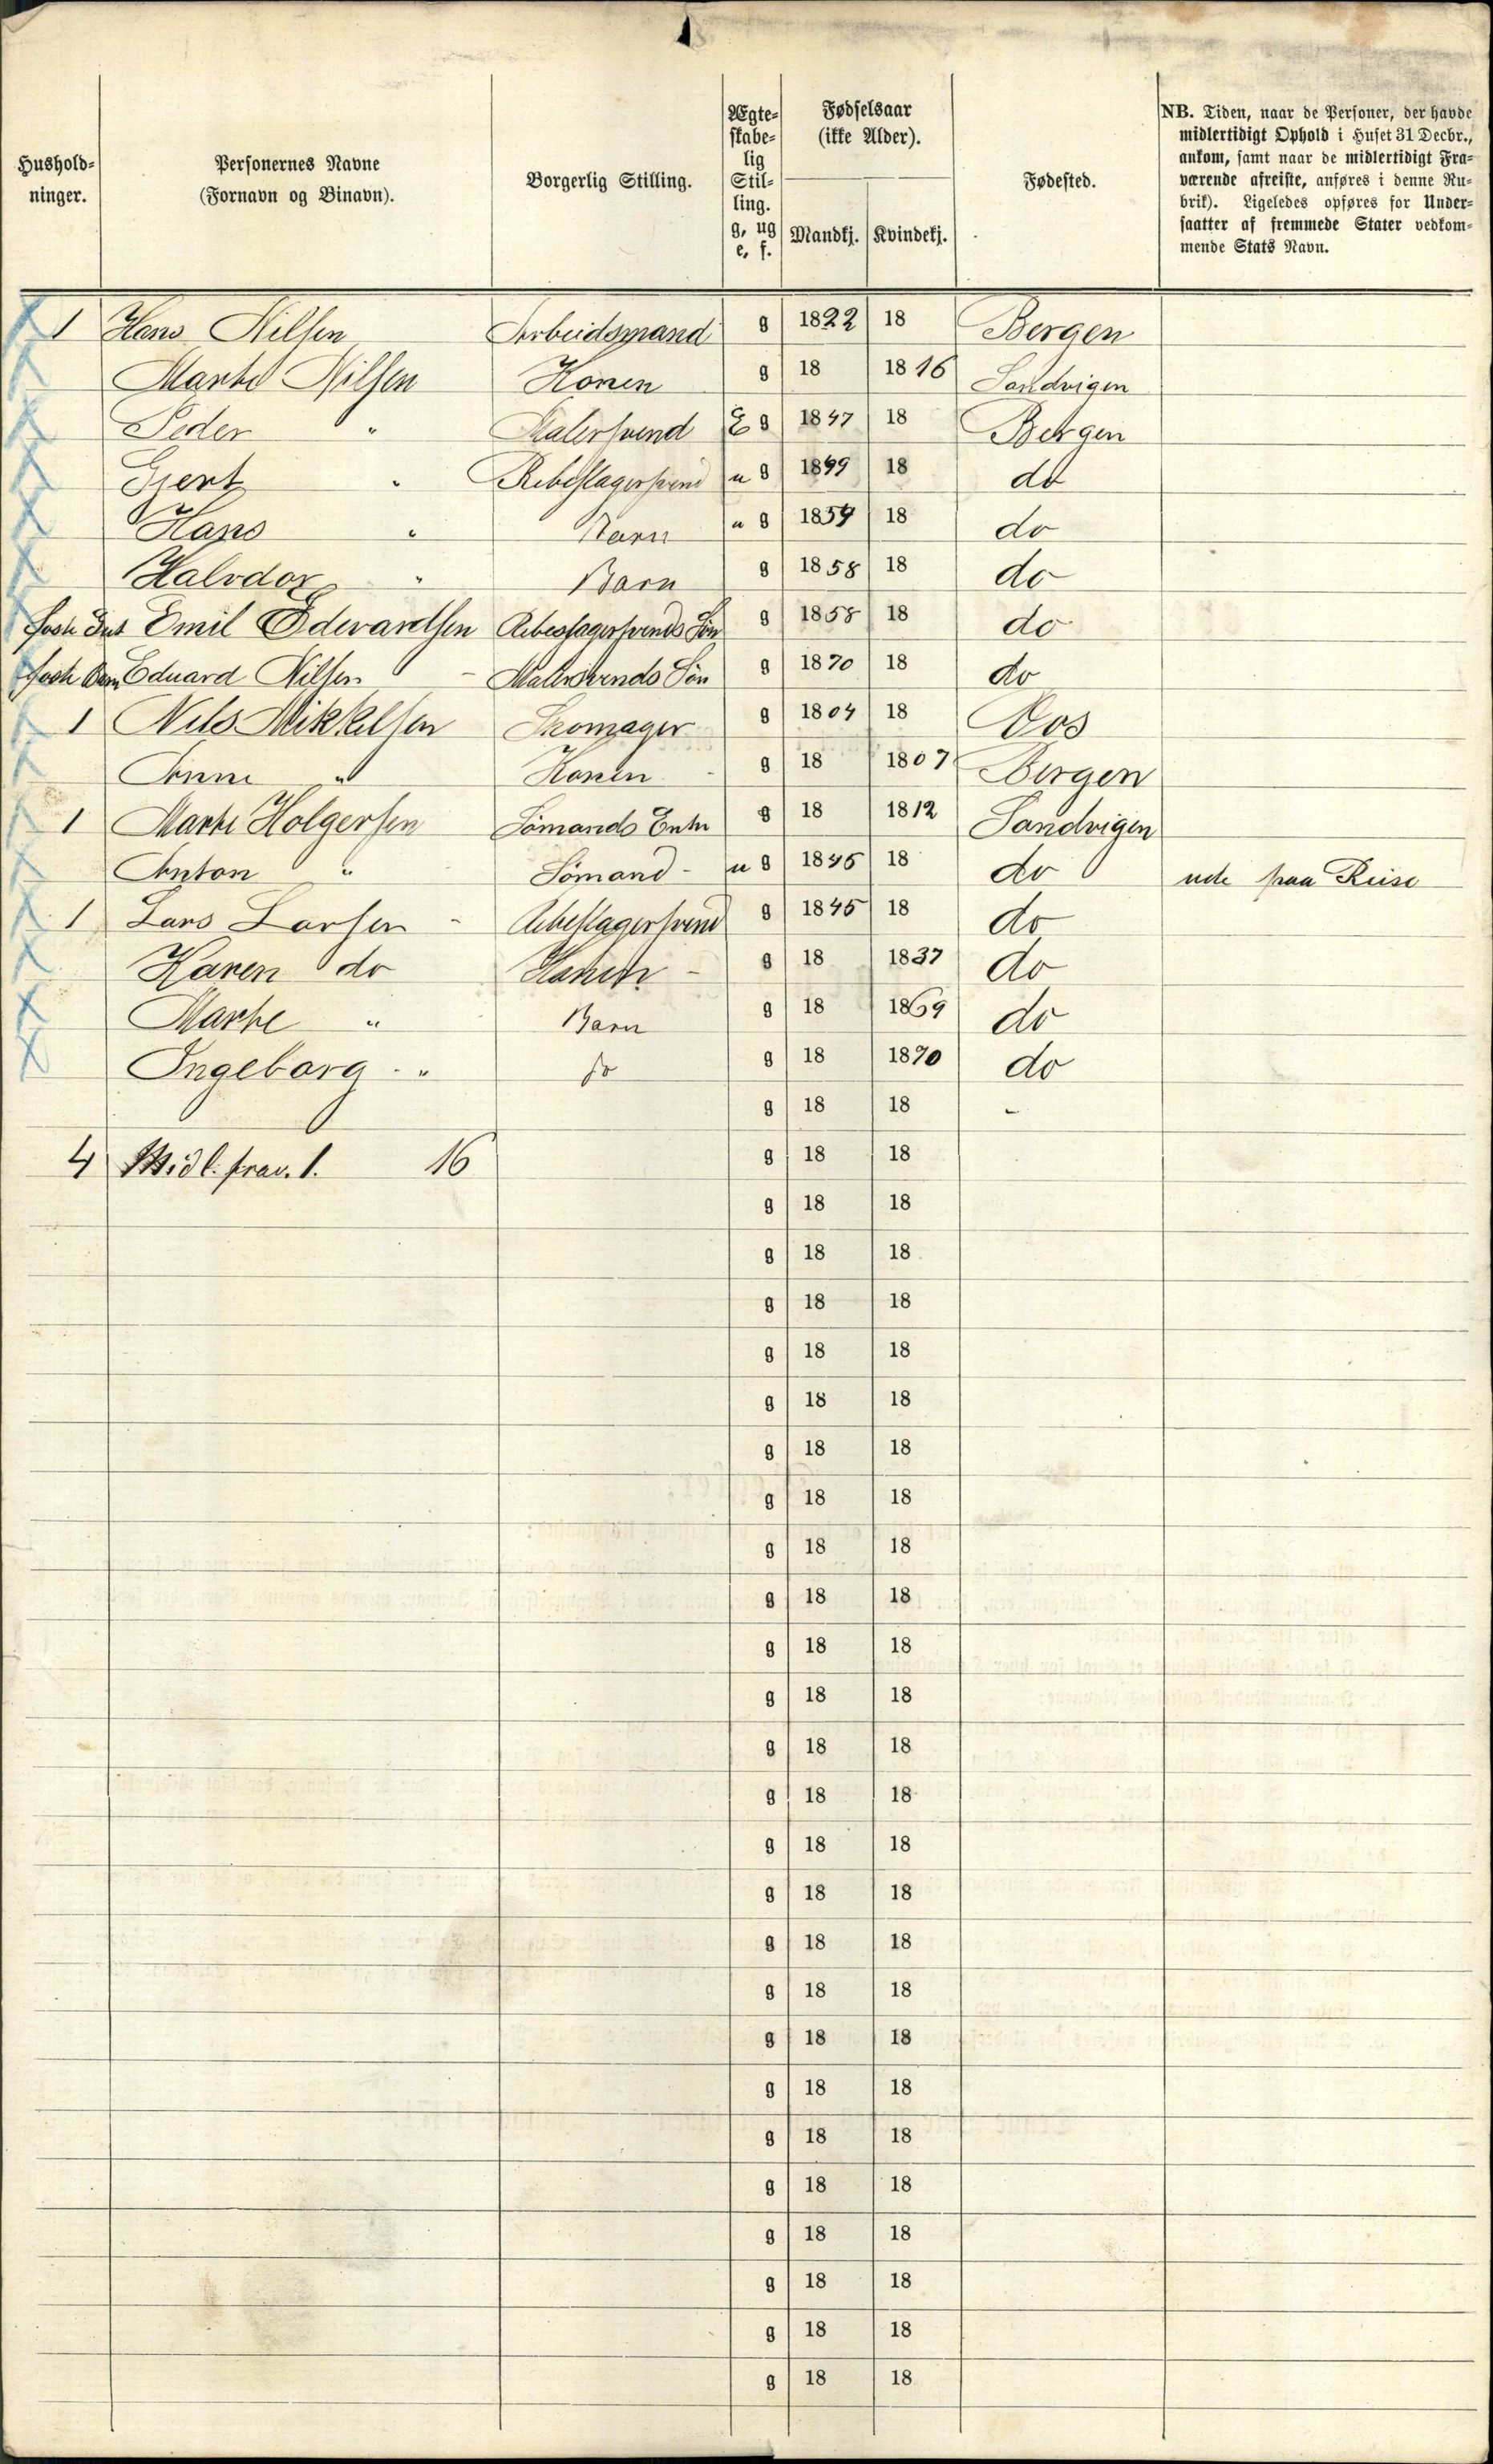 Hushold-ninger. | Personernes Navne (Fornavn og Binavn). | Borgerlig Stilling. | Ægte-skabe-lig Stil-ling. g, ug e, f. | Fødselsaar (ikke Alder). Mandkj. | Kvindekj. | Fødested. | NB. Tiden, naar de Personer, der havde midlertidigt Ophold i Huset 31 Decbr., ankom, samt naar de midlertidigt Fra-værende afreiste, anføres i denne Ru-brik). Ligeledes opføres for Under-saatter af fremmede Stater vedkom-mende Stats Navn.
1 Hans Nilsen Arbeidsmand g 1822 18 Bergen
Marthe Nilsen Konen g 18 1816 Sandvigen
Peder " Malersvend E g 1847 18 Bergen
Gjert " Rebslagersvend u g 1849 18 do
Hans " Barn u g 1854 18 do
Halvdor " Barn g 1858 18 do
Emil Edevardsen Rebeslagersvends Søn g 1858 18 do
Eduard Nilsen Malersvends Søn g 1870 18 do
1 Nils Mikkelsen Skomager g 1804 18 Vos
Anne " Konen g 18 1807 Bergen
1 Marthe Holgersen Sømands Enke g 18 1812 Sandvigen
Anton " Sømand u g 1846 18 do ude paa Reise
1 Lars Larsen Rebeslagersvend g 1845 18 do
Karen do Konen g 18 1837 do
Marthe " Barn g 18 1869 do
Ingeborg " do g 18 1870 do
g 18 18
4 Midl. frav. 1. 16 g 18 18
g 18 18
g 18 18
g 18 18
g 18 18
g 18 18
g 18 18
g 18 18
g 18 18
g 18 18
g 18 18
g 18 18
g 18 18
g 18 18
g 18 18
g 18 18
g 18 18
g 18 18
g 18 18
g 18 18
g 18 18
g 18 18
g 18 18
g 18 18
g 18 18
g 18 18